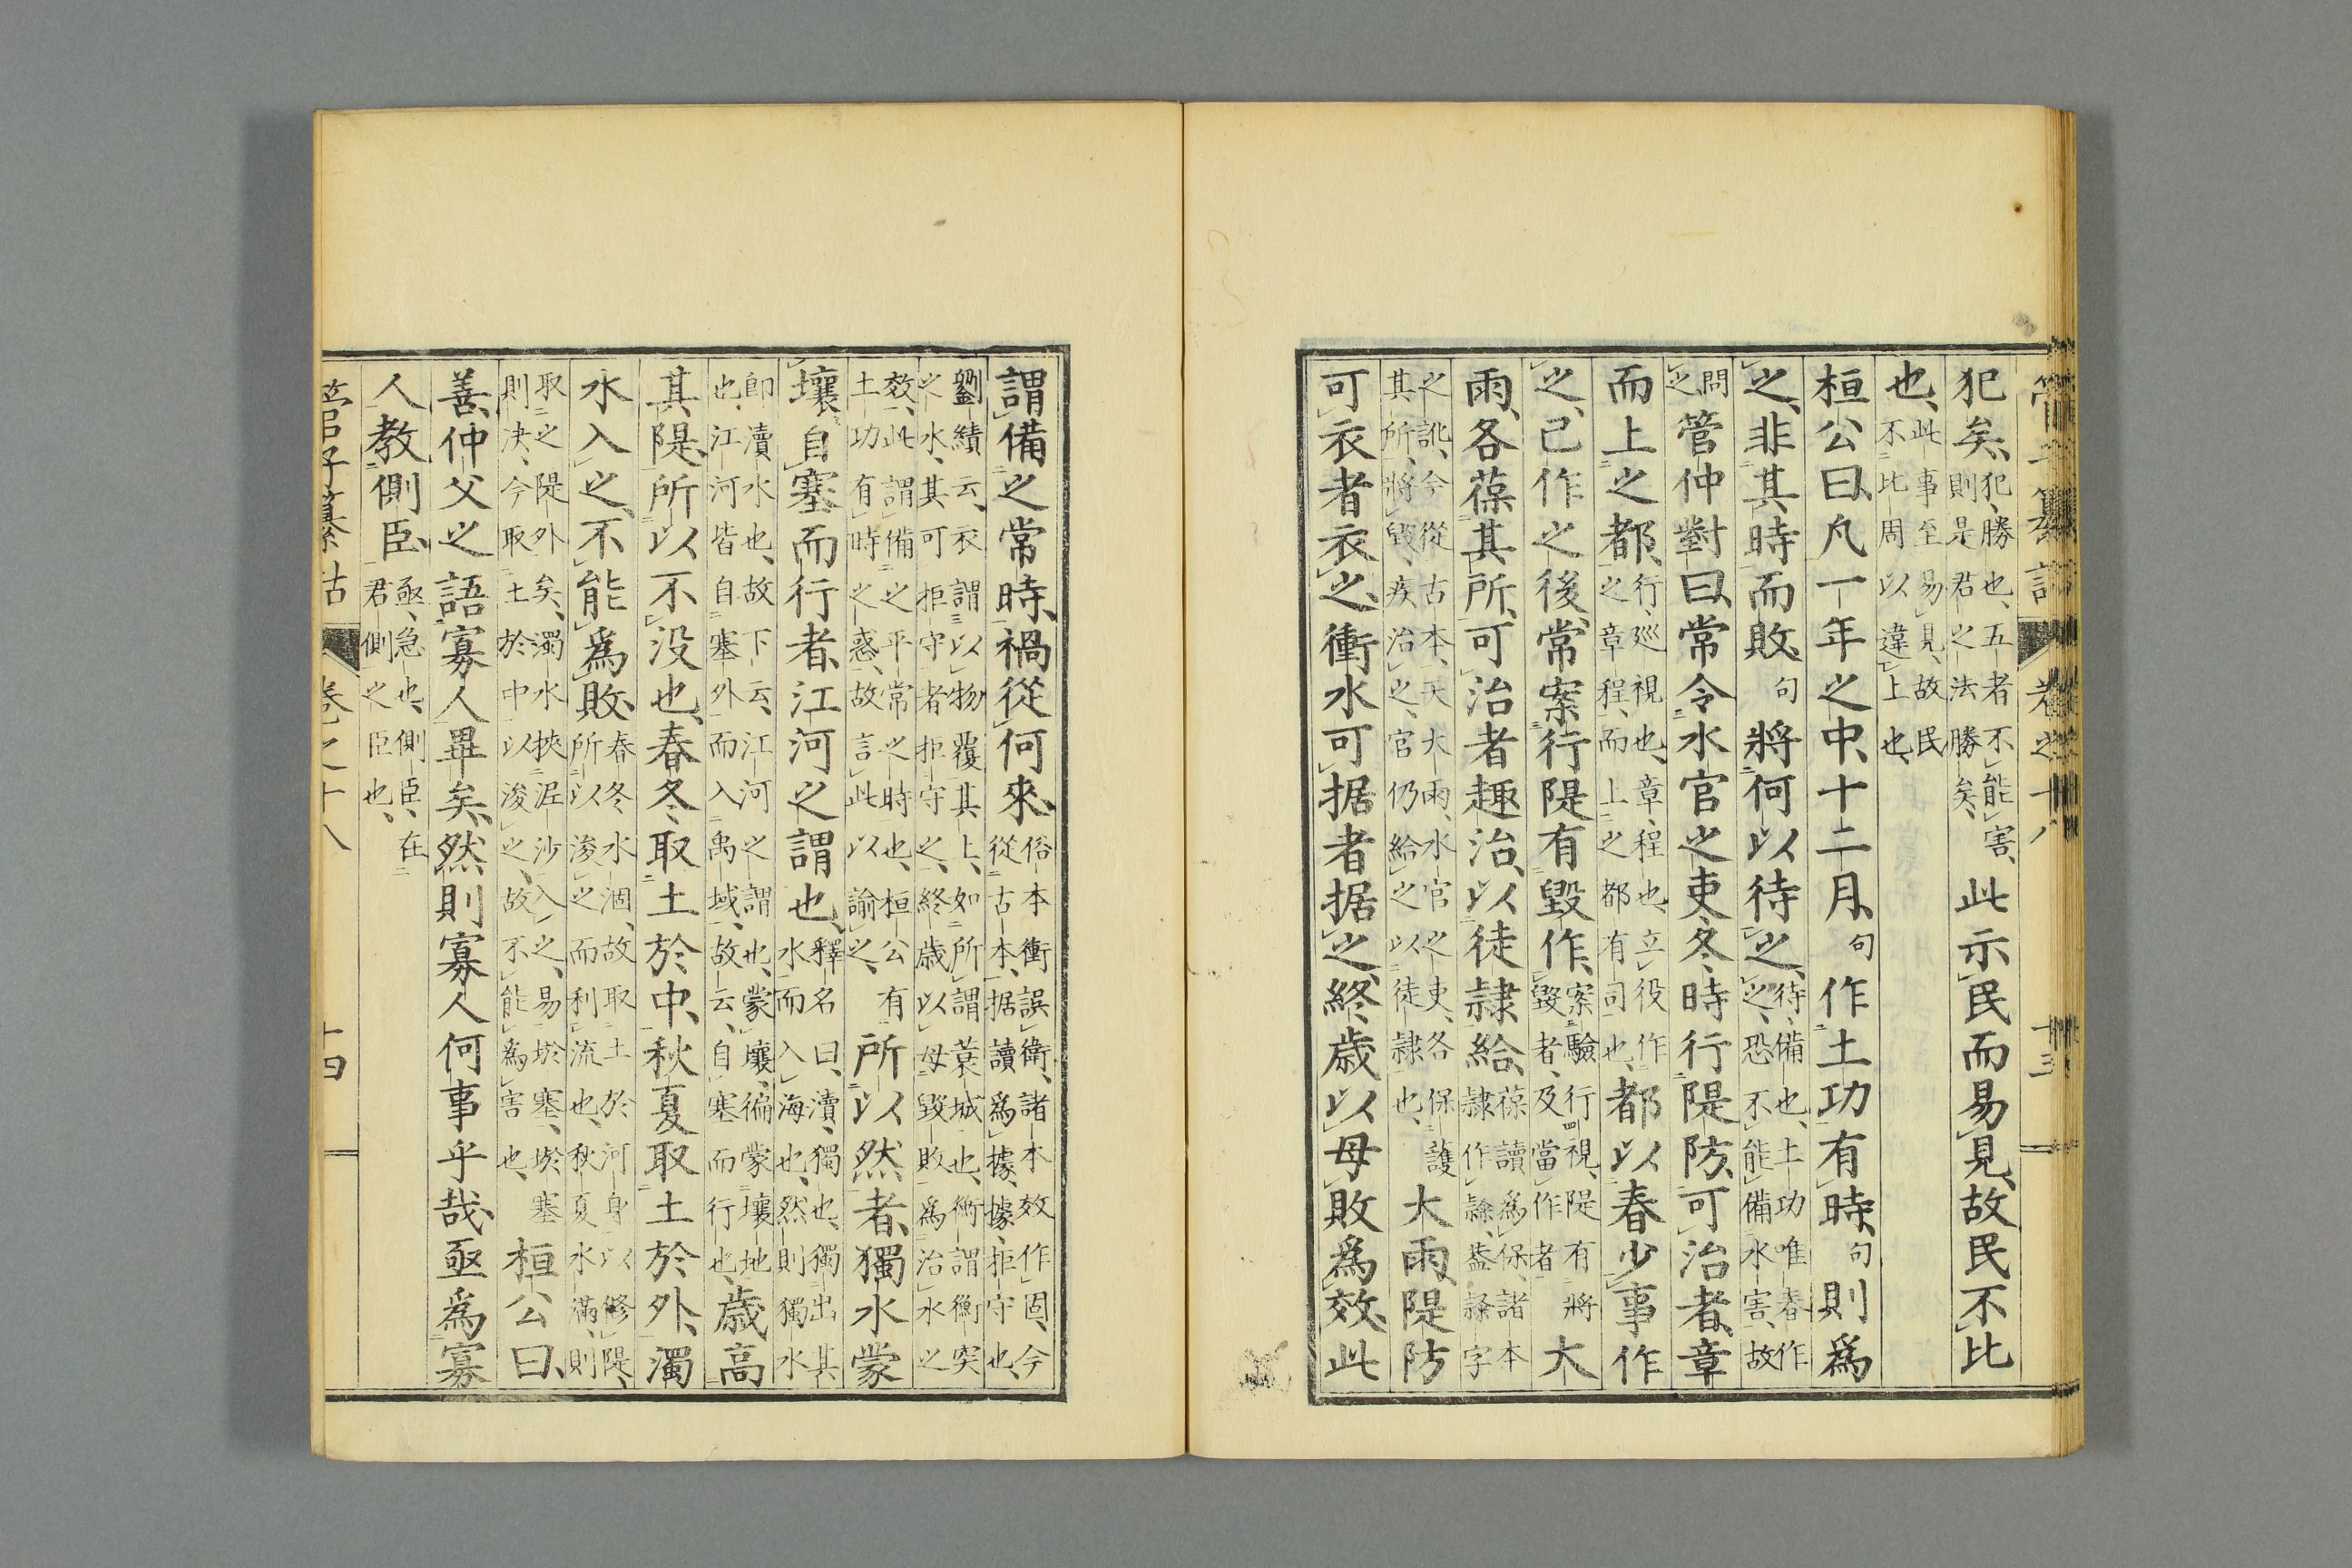 管子纂詁 卷之十八 十三
犯矣、犯、勝也、五者不能害、則是君之法勝矣、此示民而易見、故民不比
也、此事至易見、故民不比周以違上也、
桓公曰、凡一年之中、十二月、句作土功有時、句則爲
之、非其時而敗、句將何以待之、待、備也、土功唯春作之、恐不能備水害、故
問之管仲對曰、常令水官之吏、冬時行隄防、可治者、章
而上之都、行、巡視也、章、程也、立役作之章程、而上之都有司也、都以春少事作
之、已作之後、常案行隄有毀作、案驗行視、隄有將毀者、及當作者大
雨、各葆其所、可治者趣治、以徒隷給、葆讀爲保、諸本隷作、盖字
之訛、今從古本、天大雨、水官之吏、各保護其所、將毀、疾治之、官仍給之以徒隷也、大雨隄防
可衣者衣之、衝水可据者据之、終歳以毋敗爲效、此
謂備之常時、禍從何來、俗本衝誤衛、諸本效作固、今從古本、据讀爲據、據、拒守也、
劉績云、衣謂以物覆其上、如所謂蓑城也、衝謂衝突之水、其可拒守者拒守之、終歳以毋毀敗爲治水之
效、此謂備之平常之時也、桓公有土功有時之惑、故言此以諭之、所以然者、獨水蒙
壤、自塞而行者、江河之謂也、釋名曰、瀆、獨也、獨出其水而入海也、然則獨水
即瀆水也、故下云、江河之謂也、蒙壤、徧蒙壤地也、江河皆自塞外而入禹域、故云、自塞而行也、歳高
其隄、所以不没也、春冬取土於中、秋夏取土於外、濁
水入之、不能爲敗、春冬水涸、故取土於河身以修隄、所以浚之而利流也、秋夏水滿、則
取之隄外矣、濁水挾泥沙入之、易於塞、於塞則決、今取土於中以浚之、故不能爲害也、桓公曰、
善、仲父之語寡人畢矣、然則寡人何事乎哉、亟爲寡
人教側臣、亟、急也、側臣、在君側之臣也、
管子纂詁 卷之十八 十四